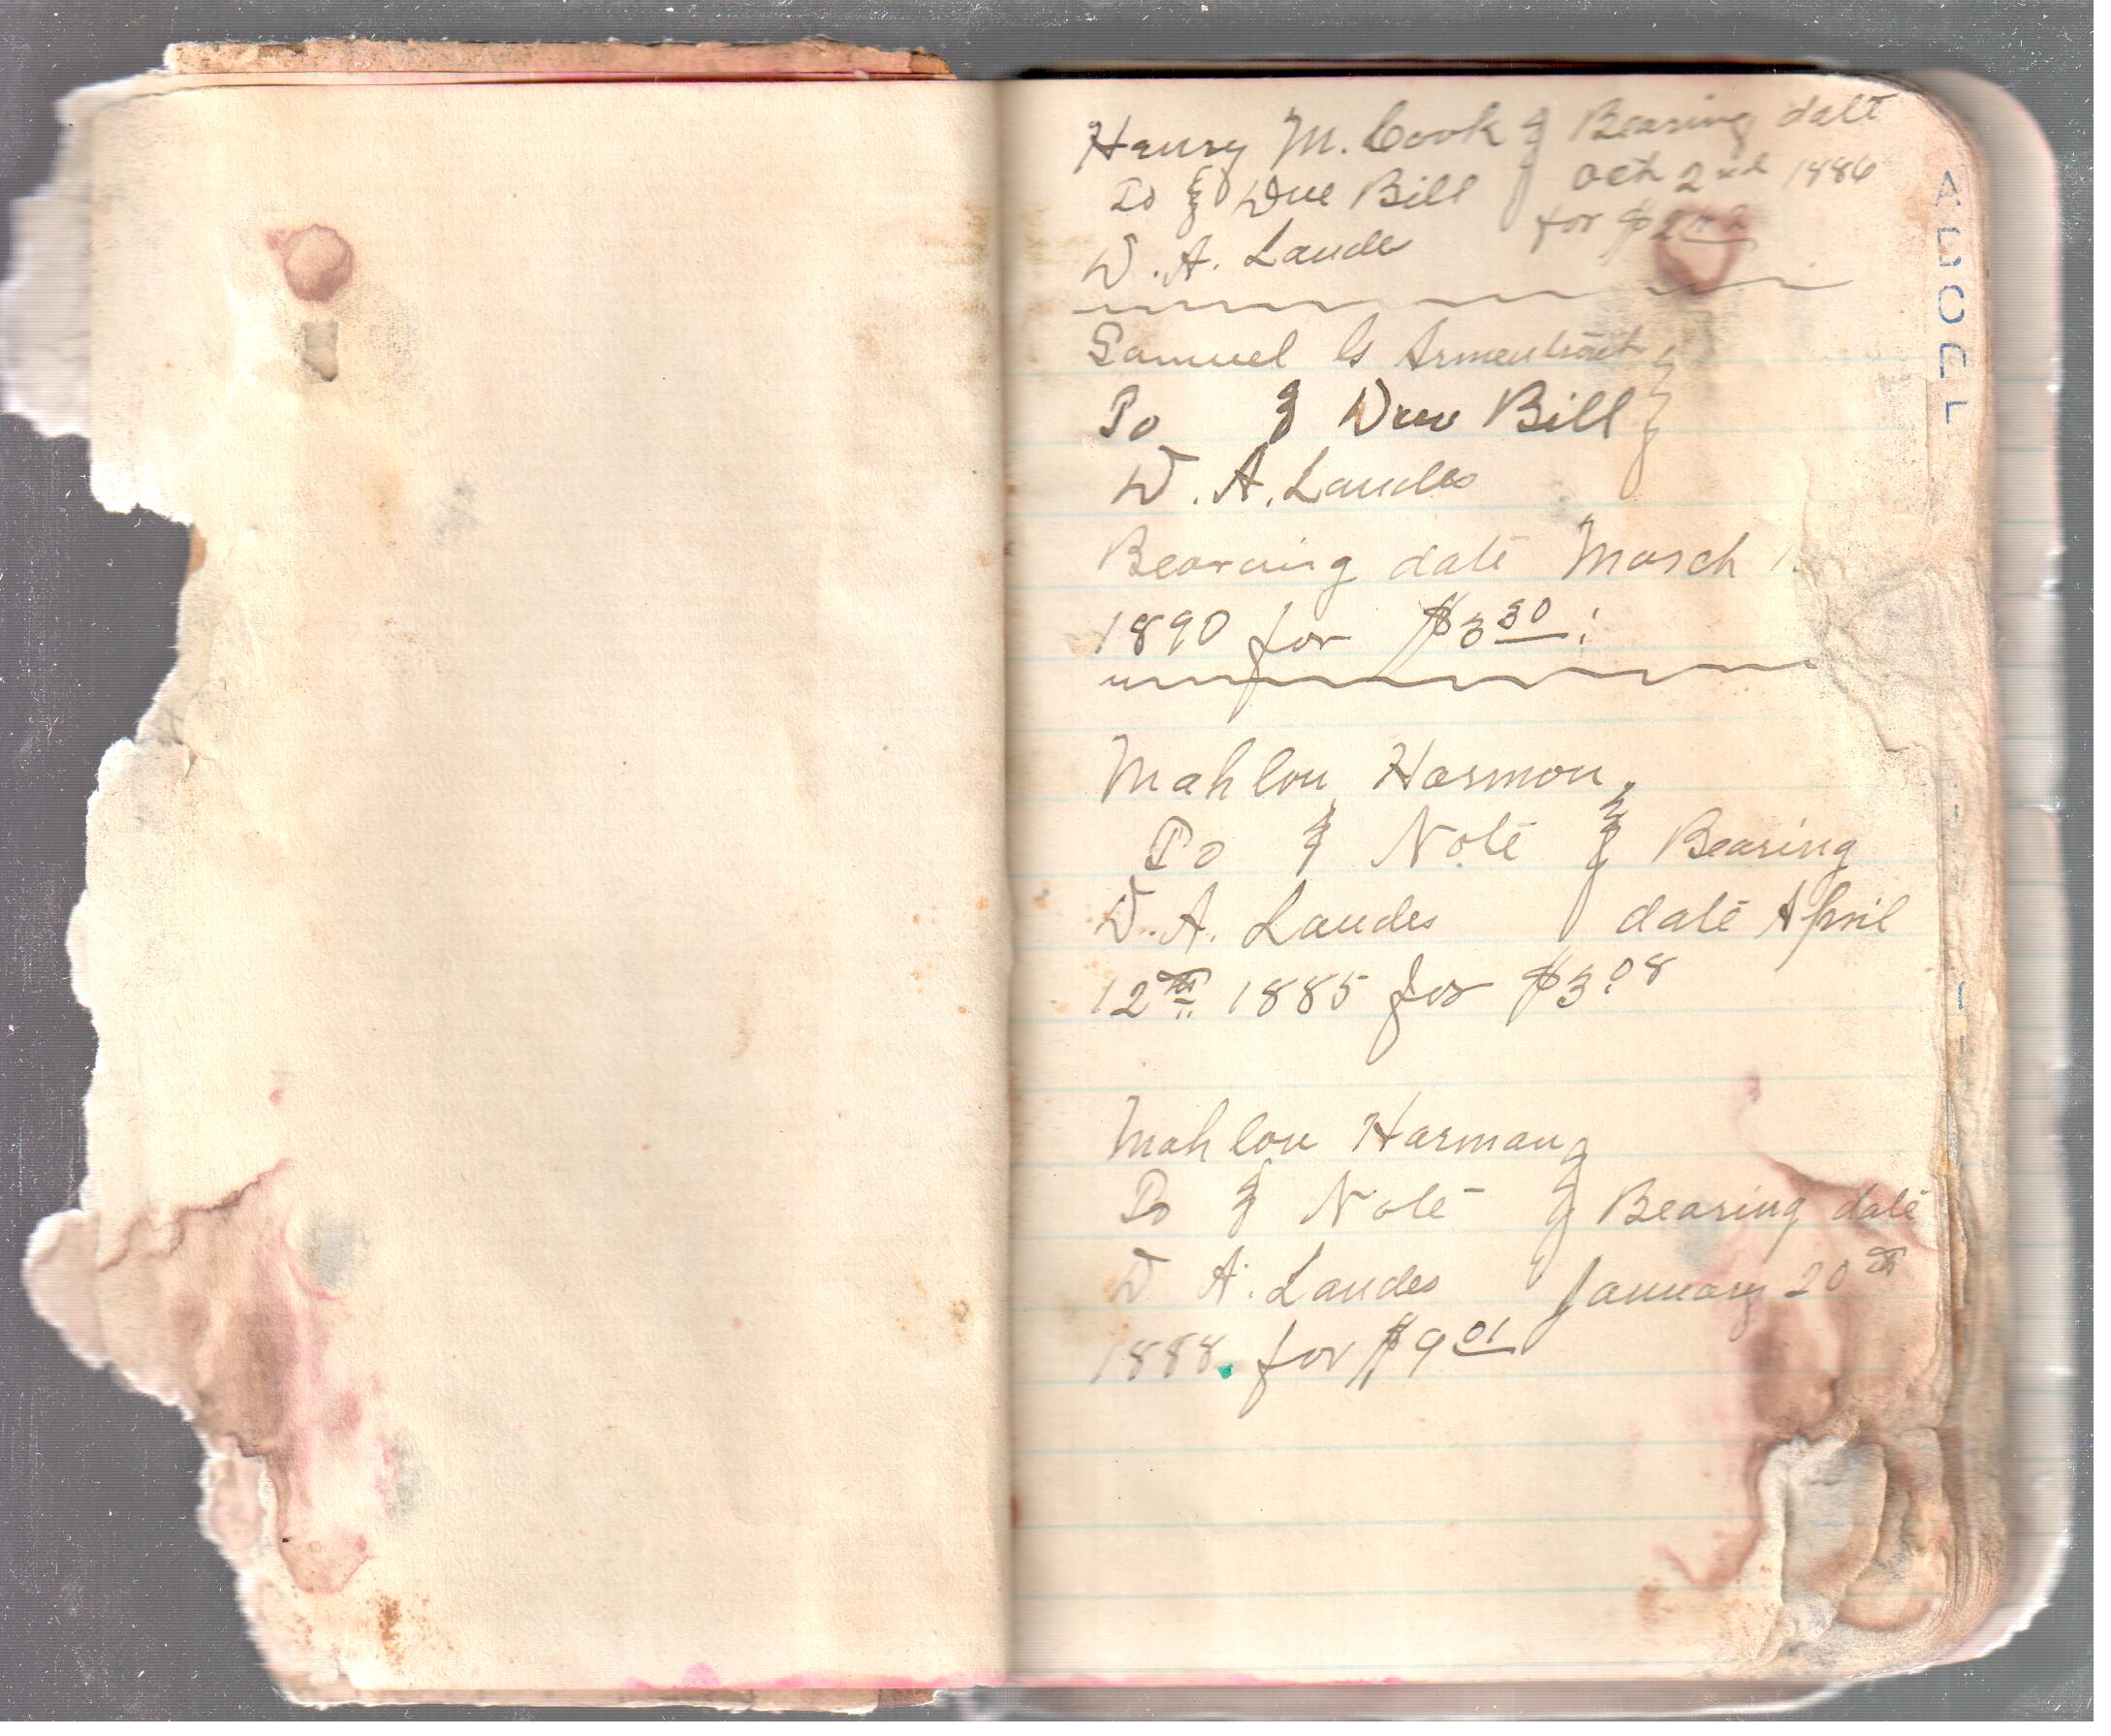 Henry M. Cook } Bearing date
To } Due Bill } Oct 2nd 1886
W. A. Laude for $2
Samuel Armentrout }
To } Due Bill }
W. A. Laudes
Bearaing date March 1.
1890 for $3 30
Mahlon Harmon
To } Note } Bearing
W. A. Laudes date April
12th 1885 for $3.08
Mahlon Harman
To } Note } Bearing date
W A. Laudes January 20th
1888. for $9 01